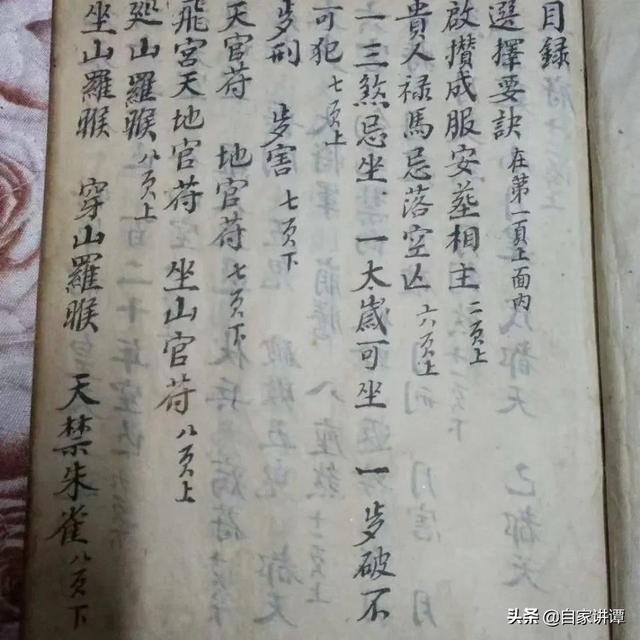 目録
選擇要訣 在第一頁上面内
啟攢成服安葬相主 二頁上
貴人禄馬忌落空亡 六頁上
一三煞忌坐 一太歲可坐 一歩破不
可犯 七頁上
歩刑 歩害 七頁下
天官符 地官符 七頁下
飛宫天地官符 坐山官符 八頁上
廵山羅睺 八頁上
坐山羅睺 穿山羅睺 天禁朱雀 八頁下
头条 @自家讲谭